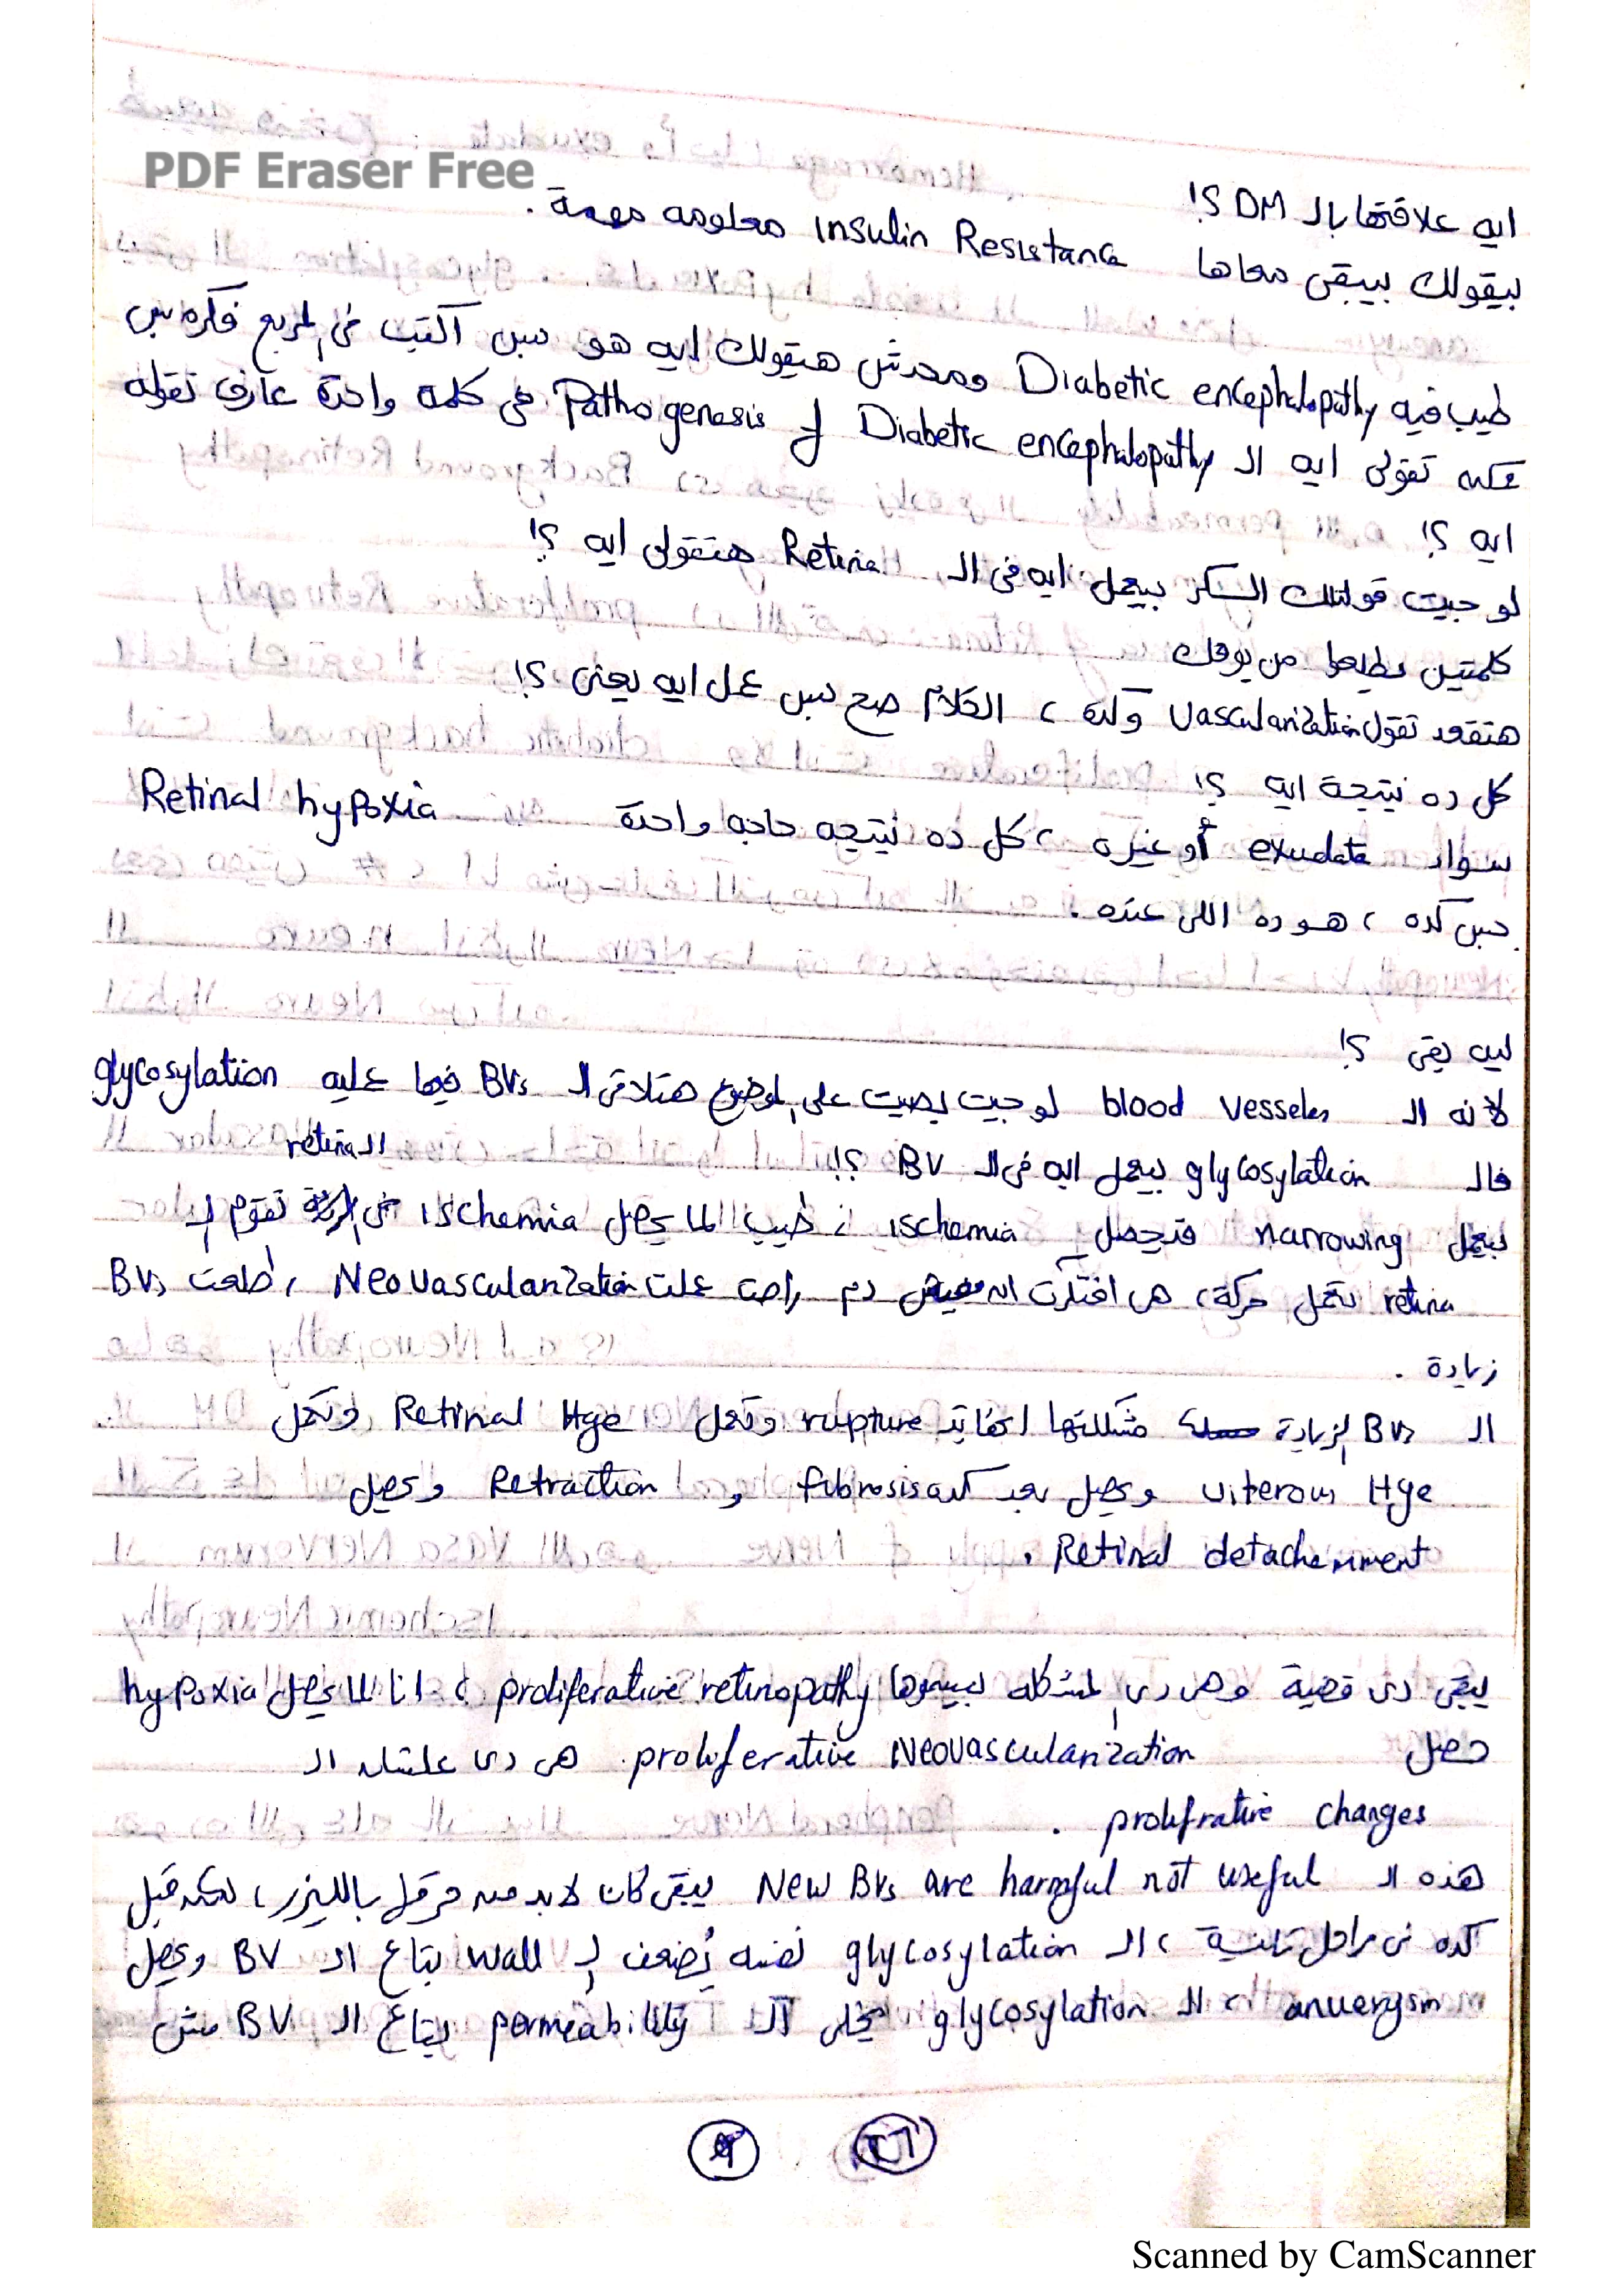 PDF Eraser Free
ايه علاقتها بالـ DM ؟!
بيقولك بيبقى معاها Insulin Resistance معلومه مهمة .
طيب فيه Diabetic encephalopathy ومحدش هيقولك ايه هو بس اكتب في المربع فكره بس
ممكن تقولى ايه الـ Pathogenesis of Diabetic encephalopathy في كلمه واحدة عارف تقوله
ايه ؟!
لو جيت قولتلك السكر بيعمل ايه فى الـ Retina هتقولى ايه ؟!
كلمتين يطلعوا من بوقك
هتقعد تقول vascularization وكده ، الكلام صح بس عمل ايه يعنى ؟!
كل ده نتيجة ايه ؟!
سواء exudate أو غيره ، كل ده نتيجه حاجه واحدة Retinal hypoxia
بس كده ، هو ده اللى عنده .
ليه بقى ؟!
لانه الـ blood vesseles لو جيت بصيت على الموضوع هتلاقى الـ BVs فيها عليه glycosylation
فالـ glycosylation بيعمل ايه فى الـ BV ؟!
بيعمل narrowing فتحصل ischemia ، طيب لما يحصل ischemia في الـ retina تقوم الـ
retina تعمل حركة ، هى افتكرت انه مفيش دم راحت عملت Neovascularization ، طلعت BVs
زيادة .
الـ BVs الزيادة مشكلتها انها بتـ rupture وتعمل Retinal Hge وتعمل
viterous Hge ويحصل بعد كده fibrosis و Retraction ويحصل
Retinal detachemment .
يبقى دى قضية وهى دى المشكله بيسموها proliferative retinopathy ، انا لما يحصل hypoxia
حصل proliferative Neovascularization . هى دى علشان الـ
prolifrative changes .
هذه الـ New BVs are harmful not useful يبقى كان لابد من حرقها بالليزر ، لكن قبل
كده فى مراحل تانية ، الـ glycosylation نفسه يُضعف الـ wall بتاع الـ BV ويحصل
anuerysm ، الـ glycosylation يخلى الـ permeability بتاع الـ BV مش
Scanned by CamScanner